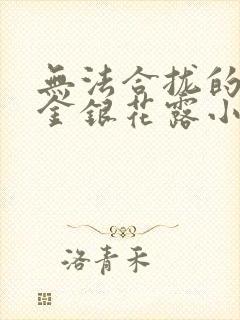 無法合拢的
金銀花露小
洛青禾